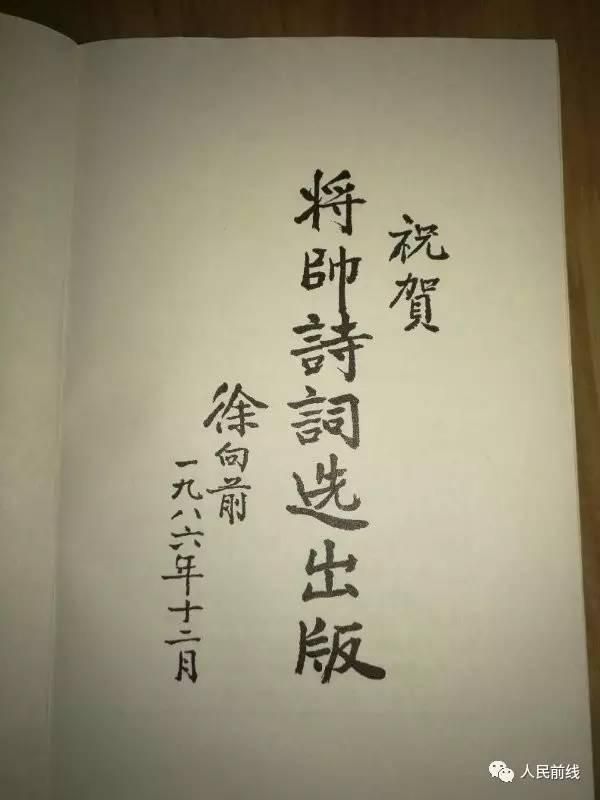 祝賀
将帥詩詞选出版
徐向前
一九八六年十二月
人民前线